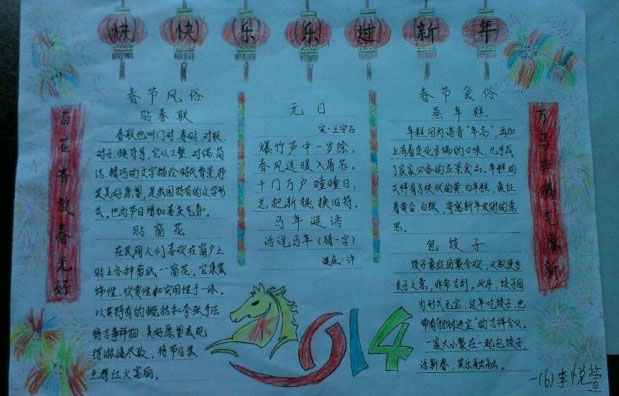 快快乐乐过新年
百花齐放春光好
万马奔腾气象新
春节风俗
贴春联
春联也叫门对、春贴、对联、
对子、
它以工整、对偶、简
洁、精巧的文字描绘时代背景,抒
发美好愿望,是我国特有的文学形
式,也为节日增加喜庆气氛。
贴窗花
在民间人们喜欢在窗户上
贴上各种剪纸—窗花。它集装
饰性、欣赏性和实用性于一体。
以其特有的概括和夸张手法
将吉事祥物、美好愿望表现
得淋漓尽致,将节日装
点得红火富丽。
元日
宋·王安石
爆竹声中一岁除,
春风送暖入屠苏。
千门万户曈曈日,
总把新桃换旧符。
马年谜语
话说马年(猜一字)
谜底:许
2014
春节食俗
蒸年糕
年糕因为谐音“年高”,再加
上有着变化多端的口味,几乎成
了家家必备的应景食品。年糕的
式样有方块状的黄、白年糕,象征
着黄金、白银,寄寓新年发财的意
思。
包饺子
饺子象征团聚合欢,又取更岁
交子之意,非常吉利。此外,饺子因
为形似元宝,过年吃饺子,也
带有“招财进宝”的吉祥含义。
一家大小聚在一起包饺子,
话新春,其乐融融。
一(6)李悦萱